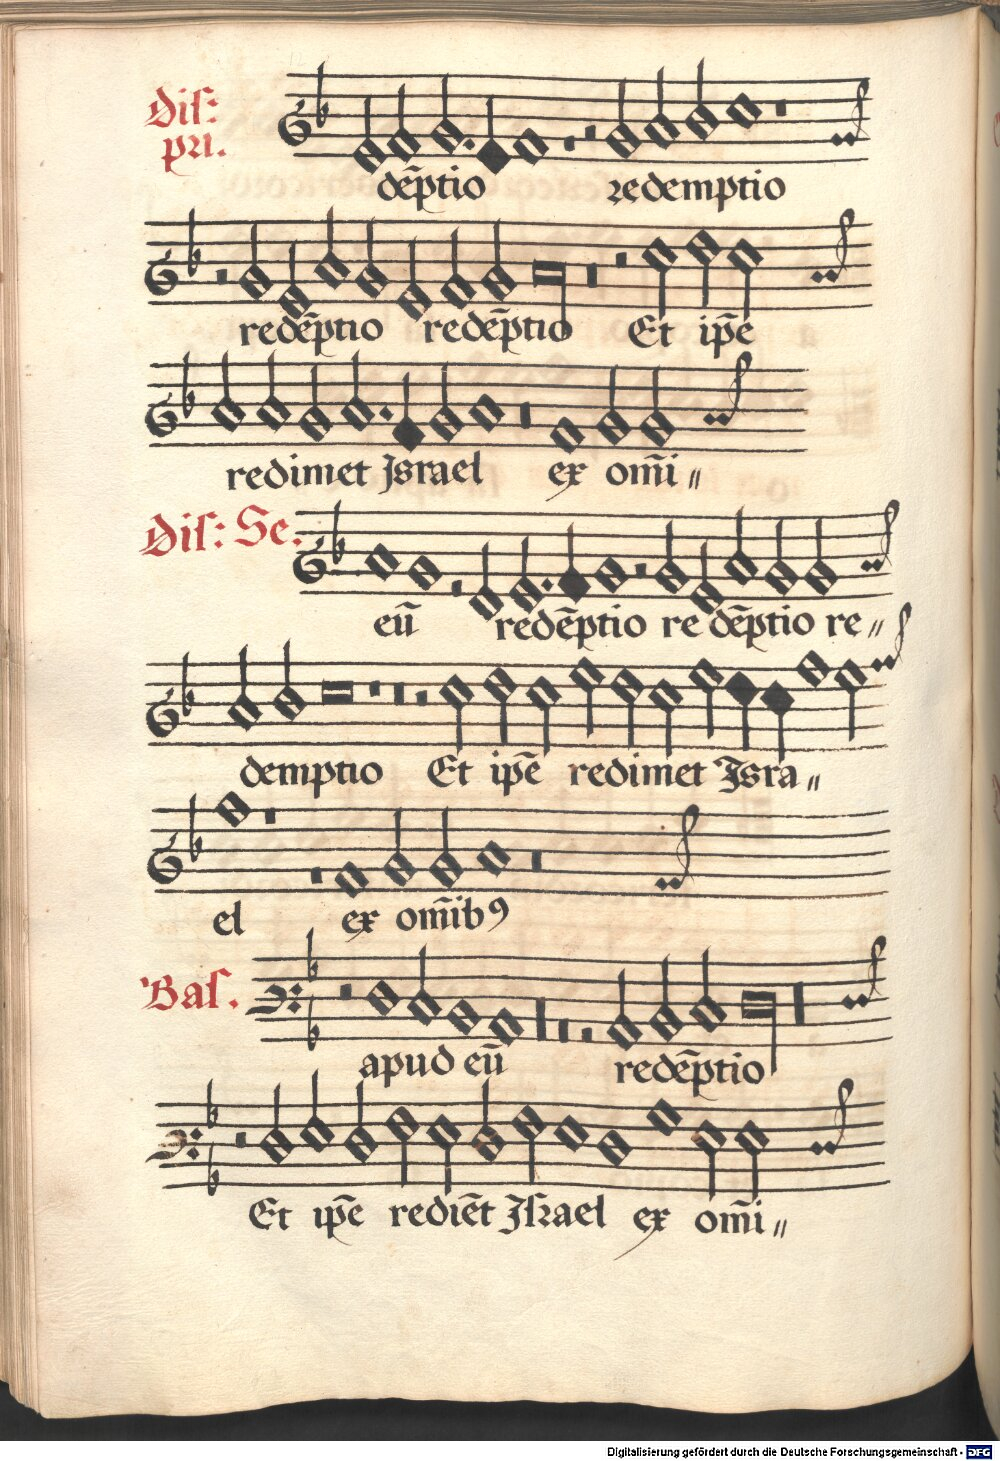 Dis:
pri.
dēptio redemptio
redēptio redēptio Et ipē
redimet Israel ex om̄i〃
Dis: Se.
eū redēptio re dēptio re〃
demptio Et ipē redimet Isra〃
el ex om̄ibꝰ
Bas.
apud eū redēptio
Et ipē rediēt Isꝛael ex om̄i〃
Digitalisierung gefördert durch die Deutsche Forschungsgemeinschaft - DFG